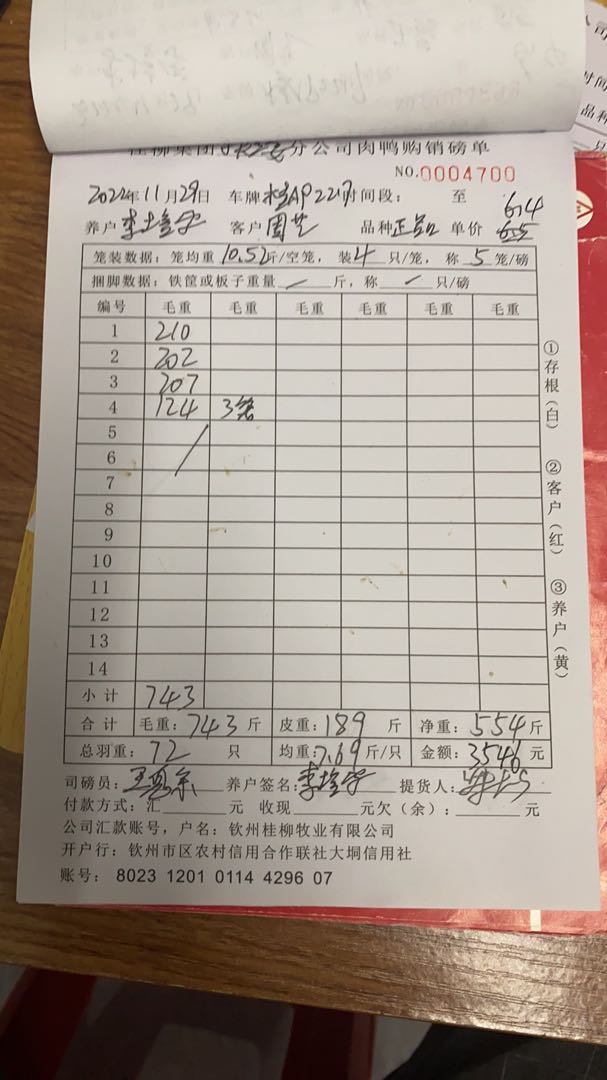 分公司肉鸭购销磅单
NO.0004700
2022年11月29日 车牌 2217 时间段: 至 6.4
养户 客户 周芝 品种 正品 单价 6.5
笼装数据: 笼均重 10.52 斤/空笼, 装 4 只/笼, 称 5 笼/磅
捆脚数据: 铁筐或板子重量 / 斤, 称 / 只/磅
编号 毛重 毛重 毛重 毛重 毛重 毛重
1 210
2 202
3 207
4 124 3笼
5
6
7
8
9
10
11
12
13
14
小计 743
合计 毛重: 743 斤 皮重: 189 斤 净重: 554 斤
总羽重: 72 只 均重: 7.69 斤/只 金额: 3546 元
司磅员: 养户签名: 提货人:
付款方式: 汇 元 收现 元欠(余): 元
公司汇款账号, 户名: 钦州桂柳牧业有限公司
开户行: 钦州市区农村信用合作联社大垌信用社
账号: 8023 1201 0114 4296 07
①存根(白)
②客户(红)
③养户(黄)
公司
时间
品种
只